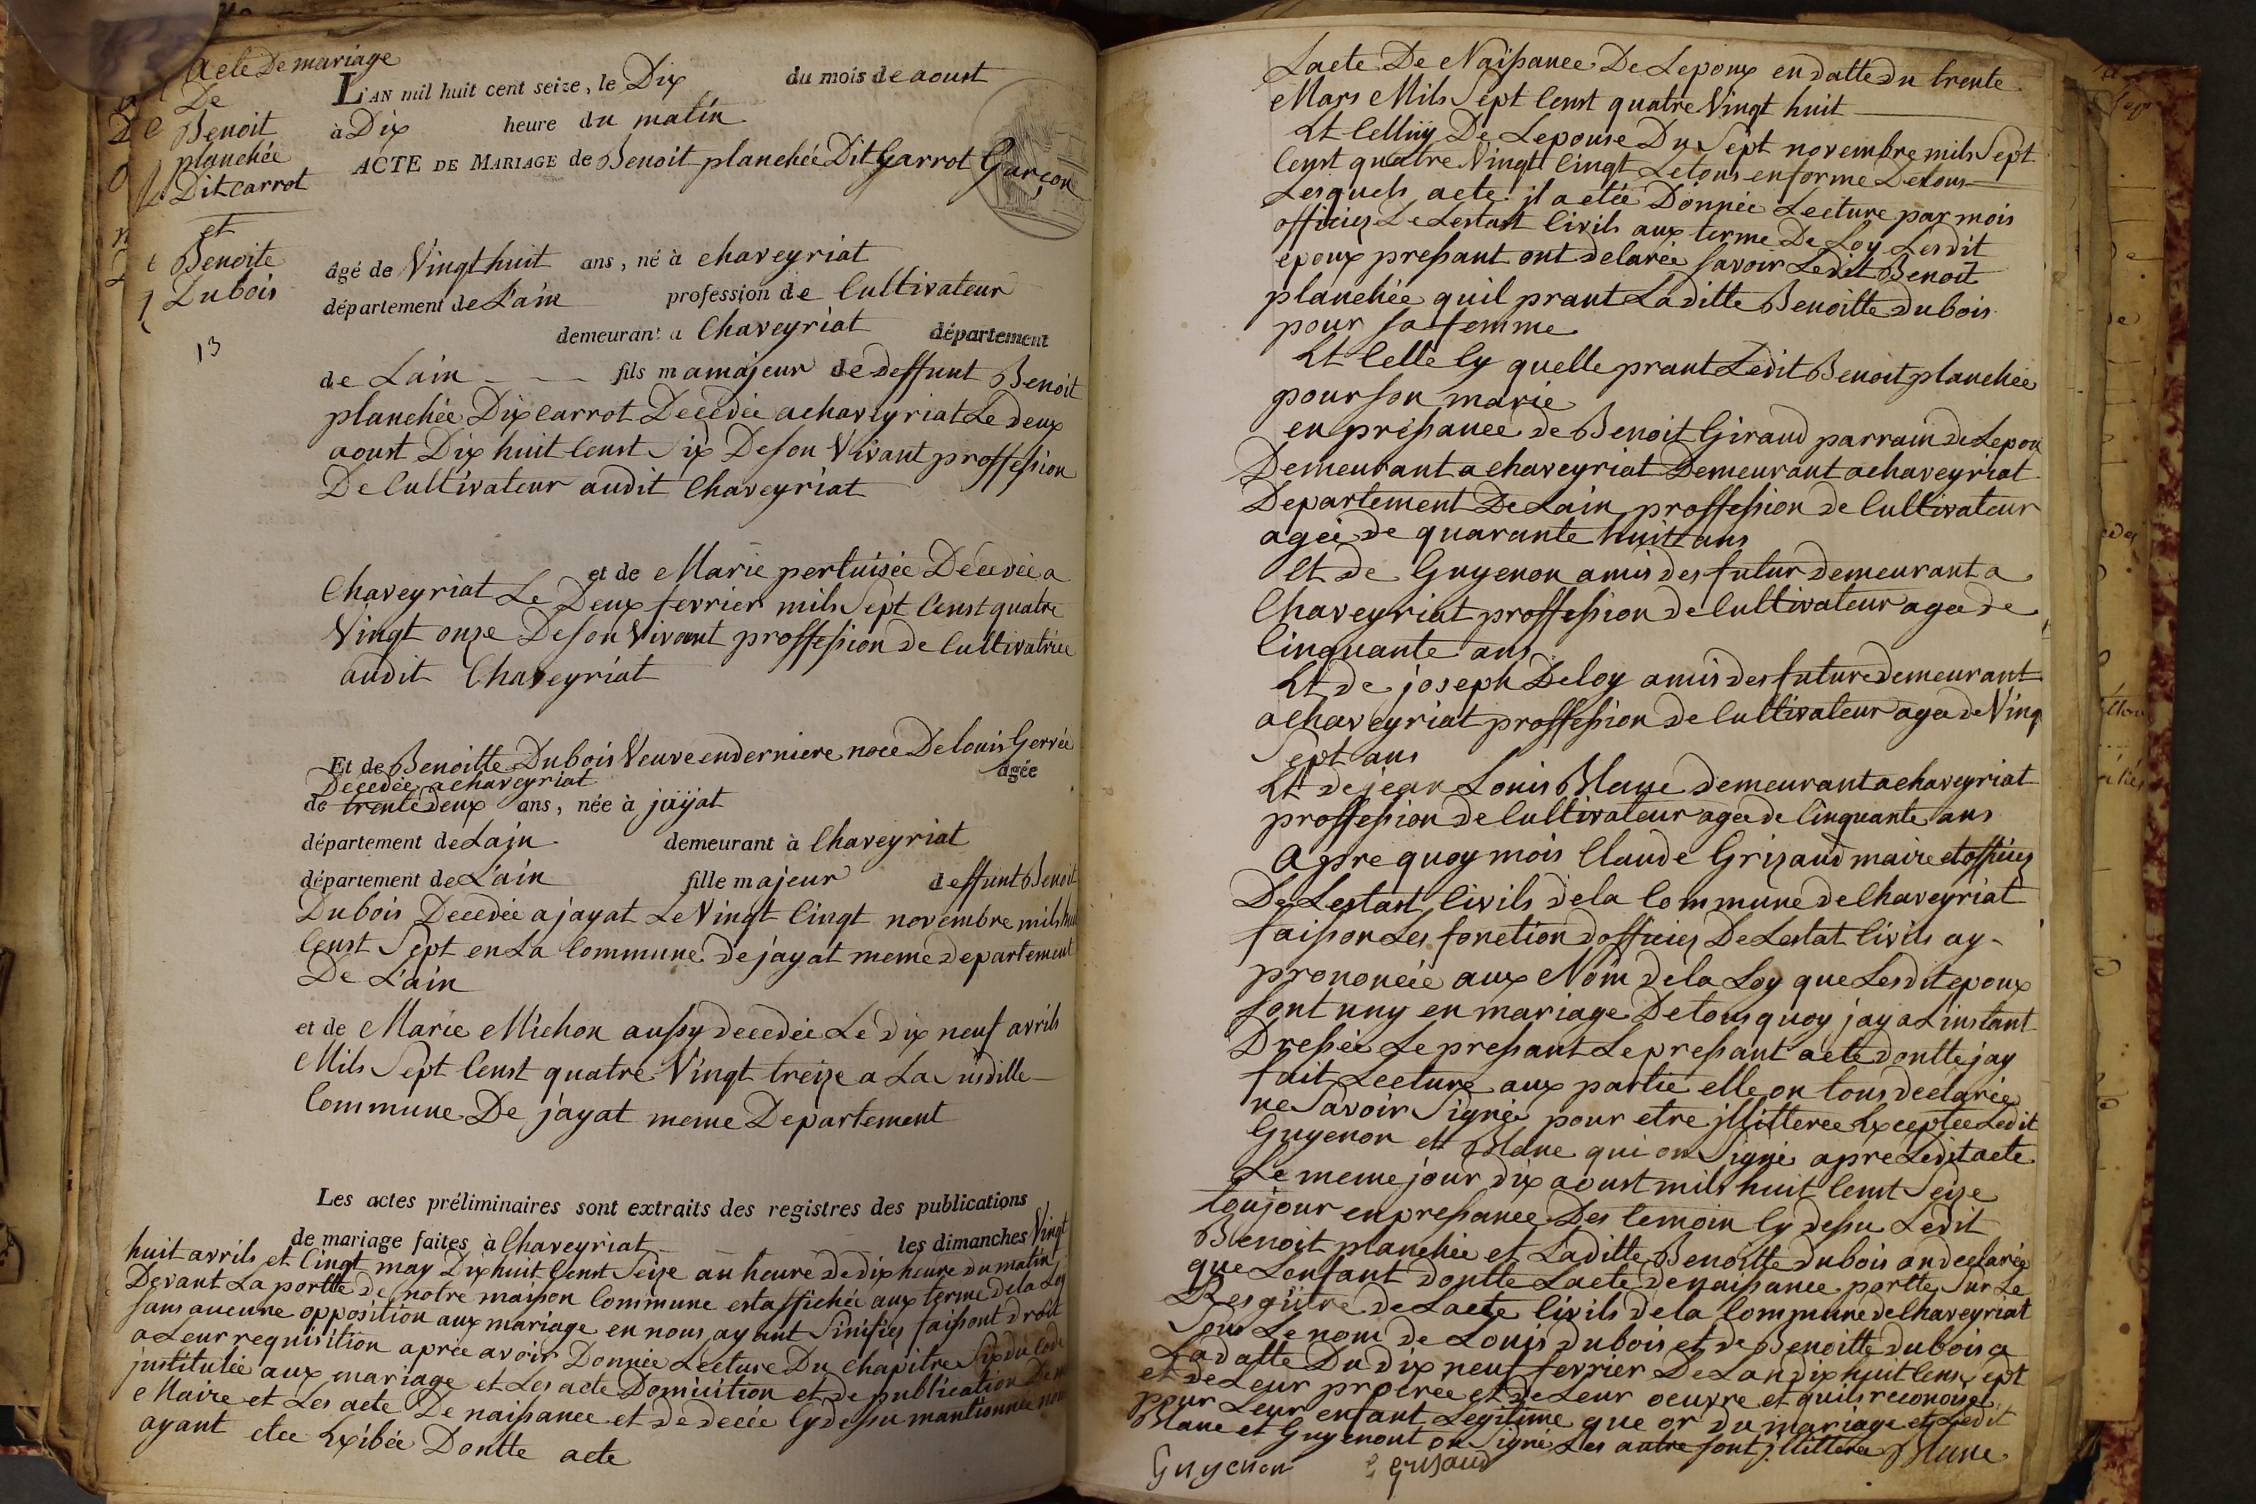 Acte De mariage
De
Benoit
planchée
Dit carrot
et
Benoite
Dubois
13
L'AN mil huit cent seize, le Dix du mois de aoust
à Dix heure du matin
ACTE DE MARIAGE de Benoit planchée Dit Garrot Garçon
agé de Vingt huit ans, né à chaveyriat
département de L'ain profession de Cultivateur
demeurant a Chaveyriat département
de Lain fils majeur de deffunt Benoit
planchée Dix carrot Decedée a chaveyriat Le deux
aoust Dix huit Censt Six De son Vivant proffession
De Cultivateur audit Chaveyriat
et de Marie pertuisée Decedée a
Chaveyriat Le Deux fevrier mils Sept Censt quatre
Vingt onze De son Vivant proffession de Cultivatrice
audit Chaveyriat
Et de Benoitte Dubois Veuve en derniere noce De louis Gervée
Decedée a chaveyriat agée
de trente deux ans, née à jaÿat
département de Lain demeurant à Chaveyriat
département de L'ain fille majeur deffunt Benoit
Dubois Decedée a jayat Le Vingt Cinqt novembre mils huit
Censt Sept en La Commune de jayat meme departement
De L'ain
et de Marie Michon aussy decedée Le dix neuf avrils
Mils Sept Censt quatre Vingt treize a La Susditte
Commune De jayat meme Departement
Les actes préliminaires sont extraits des registres des publications
de mariage faites à Chaveyriat les dimanches Vingt
huit avrils et Cinqt may Dix huit Censt Seize au heure de dix heure du matin
Devant La portte de notre mayson Commune est affichée aux terme de la Loy
sans aucune opposition aux mariage en nous ayant Sinifiez faissont droit
a Leur requisition aprée avoir Donnée Lecture Du Chapitre Six du Code
justitulée aux mariage et Les acte Domicition et de publication De
Maire et Les acte De naissance et de decée Cy dessu mantionnée nous
ayant etee Exibée Dontte acte
Lacte De Naissance De Lepoux en datte du trente
Mars Mils Sept Censt quatre Vingt huit
Et Celluÿ De Lepouse Du Sept novembre mils Sept
Censt quatre Vingt Cingt Le tous en forme De tous
Lesquels acte il a etée Donnée Lecture par mois
officiez De Lestast Civils aux terme De Loy Lesdit
epoux pressant ont delarée Savoir Ledit Benoit
planchée quil prant Laditte Benoitte dubois
pour sa femme
Et Celle Cy quelle prant Ledit Benoit planchée
pour son marie
en pressance de Benoit Giraud parrain de Lepou
Demeurant a chaveyriat Demeurant a chaveyriat
Departement De Lain proffession de Cultivateur
agée de quarante huit ans
Et de Guyenon amis des futur demeurant a
Chaveyriat proffession de Cultivateur agee de
Cinquante ans
Et de joseph Deloy amis des future demeurant
a chaveyriat proffession de Cultivateur agee de Ving
Sept ans
Et de jean Louis Blanc demeurant a chaveyriat
proffession de Cultivateur agee de Cinquante ans
Apre quoy mois Claude Grizaud maire et officiez
De Lestast Civils de la Commune de Chaveyriat
faisson Les fonction d officiez De Lestat Civils ay
prononcée aux Nom de la Loy que Lesdit epoux
Sont uny en mariage De tous quoy jay a Linstant
Dressée Le pressant Le pressant acte dontte jay
fait Lecture aux partie elle on tous declarée
ne Savoir Signée pour etre jllitteree Exceptee Ledit
Guyenon ett Blanc qui on Signé apre Ledit acte
Le meme jour dix aoust mils huit Censt Seize
toujour en pressance Des temoin Cy dessu Ledit
Benoit planchée et Laditte Benoitte dubois on declarée
que Lenfant dontte Lacte de naissance portte Sur Le
Resgitre de Lacte Civils de la Commune de Chaveyriat
Sous Le nom de Louis dubois et de Benoitte dubois a
La datte Du dix neuf fevrier De Lan dix huit Cens Sept
et de Leur procree et de Leur oeuvre et quils reconoisset
pour Leur enfant Legitime que or du mariage et Ledit
Blanc et Guyenont on Signé Les autre sont jllitteree Blanc
Guyenon Grisaud